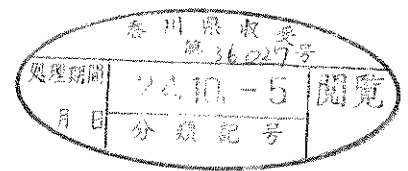 香川県収受
第36027号
処理期間
24.10.-5
閲覧
月 日
分類記号